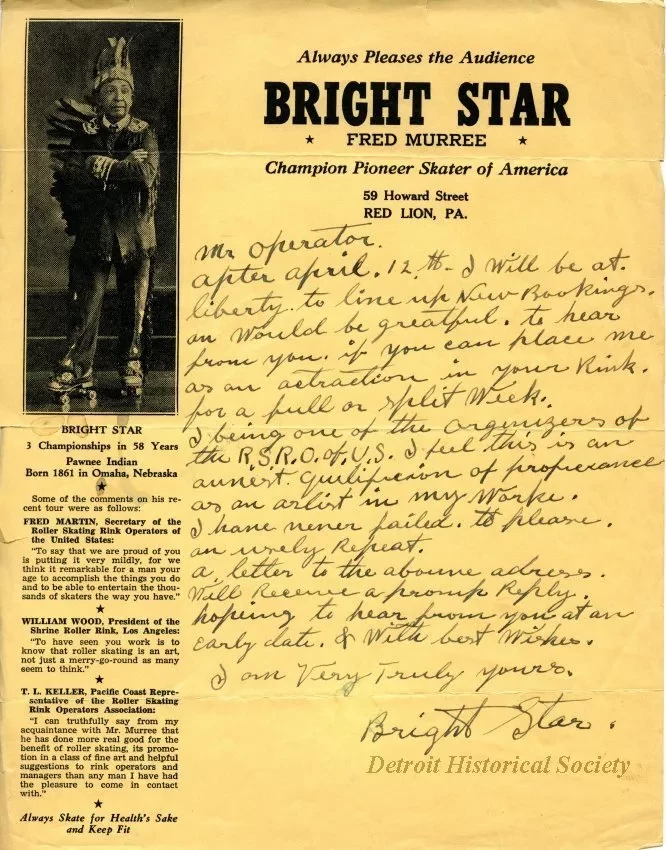 Always Pleases the Audience
BRIGHT STAR
★ FRED MURREE ★
Champion Pioneer Skater of America
59 Howard Street
RED LION, PA.
Mr Operator.
after april. 12.th - I Will be at.
liberty. to line up New Bookings.
an Would be greatful. to hear
from you. if you can place me
as an atraction in your Rink.
for a full or split Week.
I being one of the organizers of
the R.S.R.O. of. U.S. I feel this is an
as an artist in my Worke.
I have never failed. to please.
an usely Repeat.
a letter to the aboume adress.
Will Receive a promp Reply.
hoping to hear from you at an
Early date. & With best Wishes.
I am Very Truly yours.
Bright Star.
BRIGHT STAR
3 Championships in 58 Years
Pawnee Indian
Born 1861 in Omaha, Nebraska
★
Some of the comments on his re-
cent tour were as follows:
FRED MARTIN, Secretary of the
Roller Skating Rink Operators of
the United States:
"To say that we are proud of you
is putting it very mildly, for we
think it remarkable for a man your
age to accomplish the things you do
and to be able to entertain the thou-
sands of skaters the way you have."
★
WILLIAM WOOD, President of the
Shrine Roller Rink, Los Angeles:
"To have seen you work is to
know that roller skating is an art,
not just a merry-go-round as many
seem to think."
★
T. L. KELLER, Pacific Coast Repre-
sentative of the Roller Skating
Rink Operators Association:
"I can truthfully say from my
acquaintance with Mr. Murree that
he has done more real good for the
benefit of roller skating, its promo-
tion in a class of fine art and helpful
suggestions to rink operators and
managers than any man I have had
the pleasure to come in contact
with."
★
Always Skate for Health's Sake
and Keep Fit
Detroit Historical Society